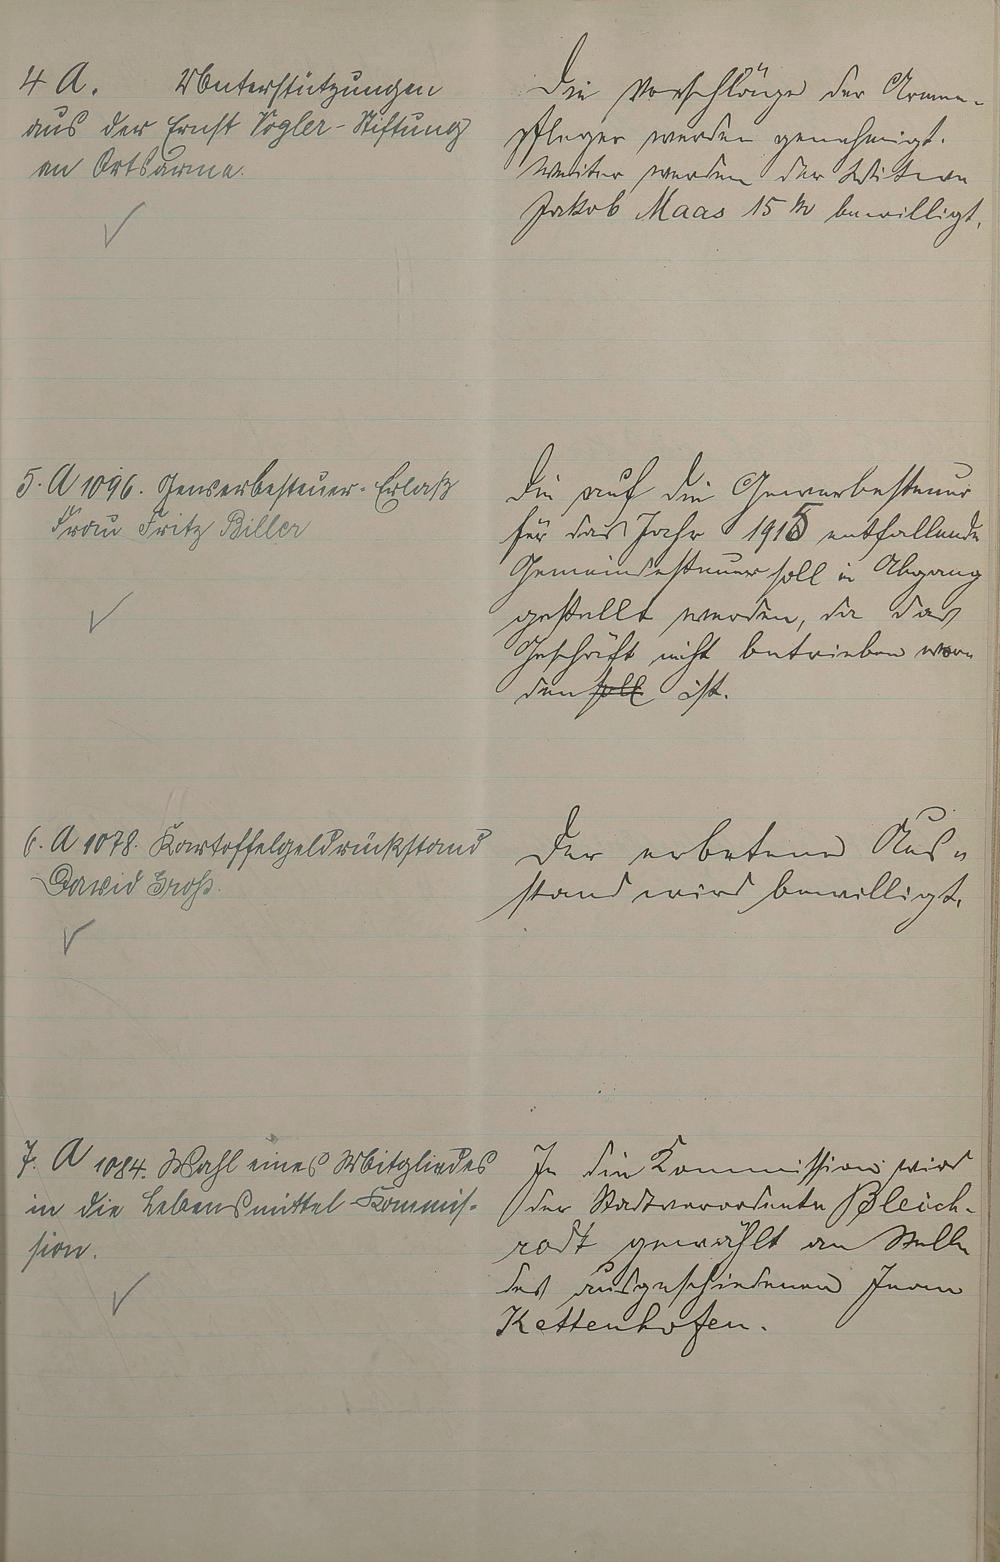 4 A. Unterstützungen
aus der Ernst Vogler-Stiftung
an Ortsarme.
Die Vorschläge der Armen-
pfleger werden genehmigt.
Weiter werden der Witwe
Jakob Maas 15 M bewilligt.
5. A 1096. Gewerbesteuer-Erlaß
Frau Fritz Biller
Die auf die Gewerbesteuer
für das Jahr 1915 entfallende
Gemeindesteuer soll in Abgang
gestellt werden, da das
Geschäft nicht betrieben wor-
den soll ist.
6. A 1078. Kartoffelgeldrückstand
David Groß.
Der erbetene Aus-
stand wird bewilligt.
7. A 1084. Wahl eines Mitgliedes
in die Lebensmittel-Kommis-
sion.
In die Kommission wird
der Stadtverordnete Bleich-
rodt gewählt an Stelle
des ausgeschiedenen Herrn
Kettenhofen.